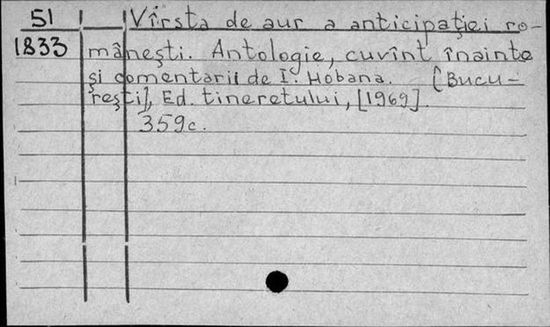 51 Vîrsta de aur a anticipaţiei ro-
1833 mâneşti. Antologie, cuvînt înainte
şi comentarii de I. Hobana. [Bucu-
reşti], Ed. tineretului, [1969].
359c.